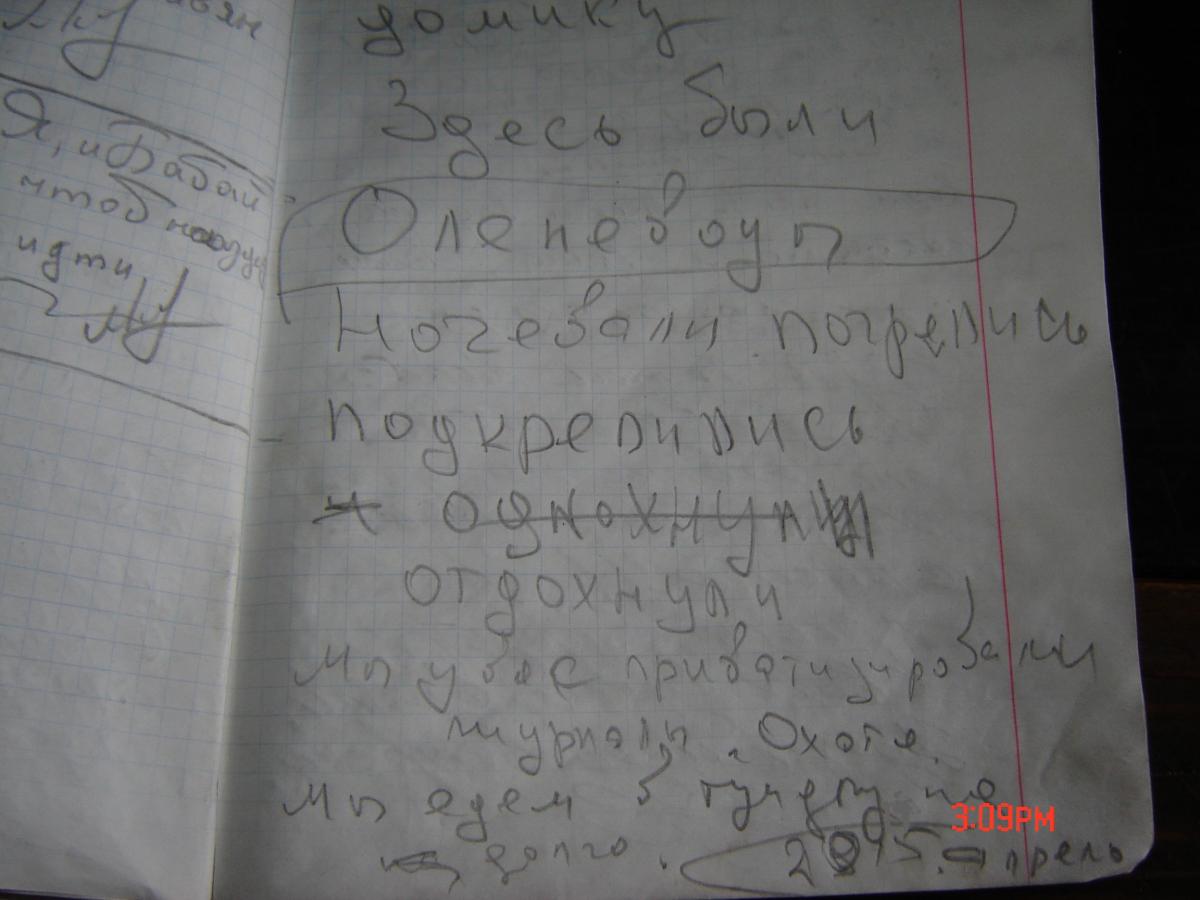 Я, и Бабай
чтоб
идти
домику
Здесь были
Оленеводы
Ночевали погрелись
подкрепились
отдохнули
Мы у вас приватизировали
журналы. Охота
Мы едем в тундру на
долго.
2015. апрель
3:09PM